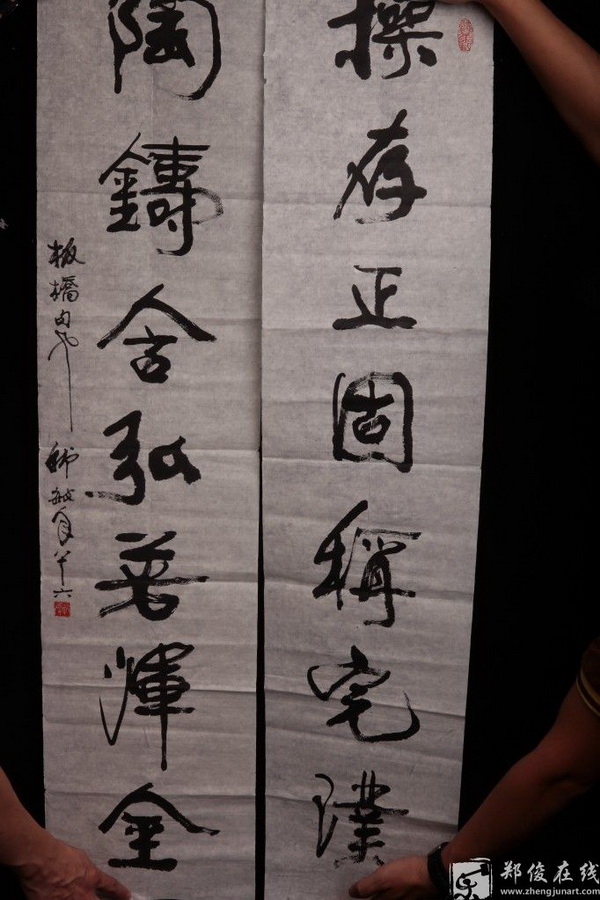 操存正固稱完璞
陶鑄含弘若渾金
板橋句也
年八十六
郑俊在线
www.zhengjunart.com